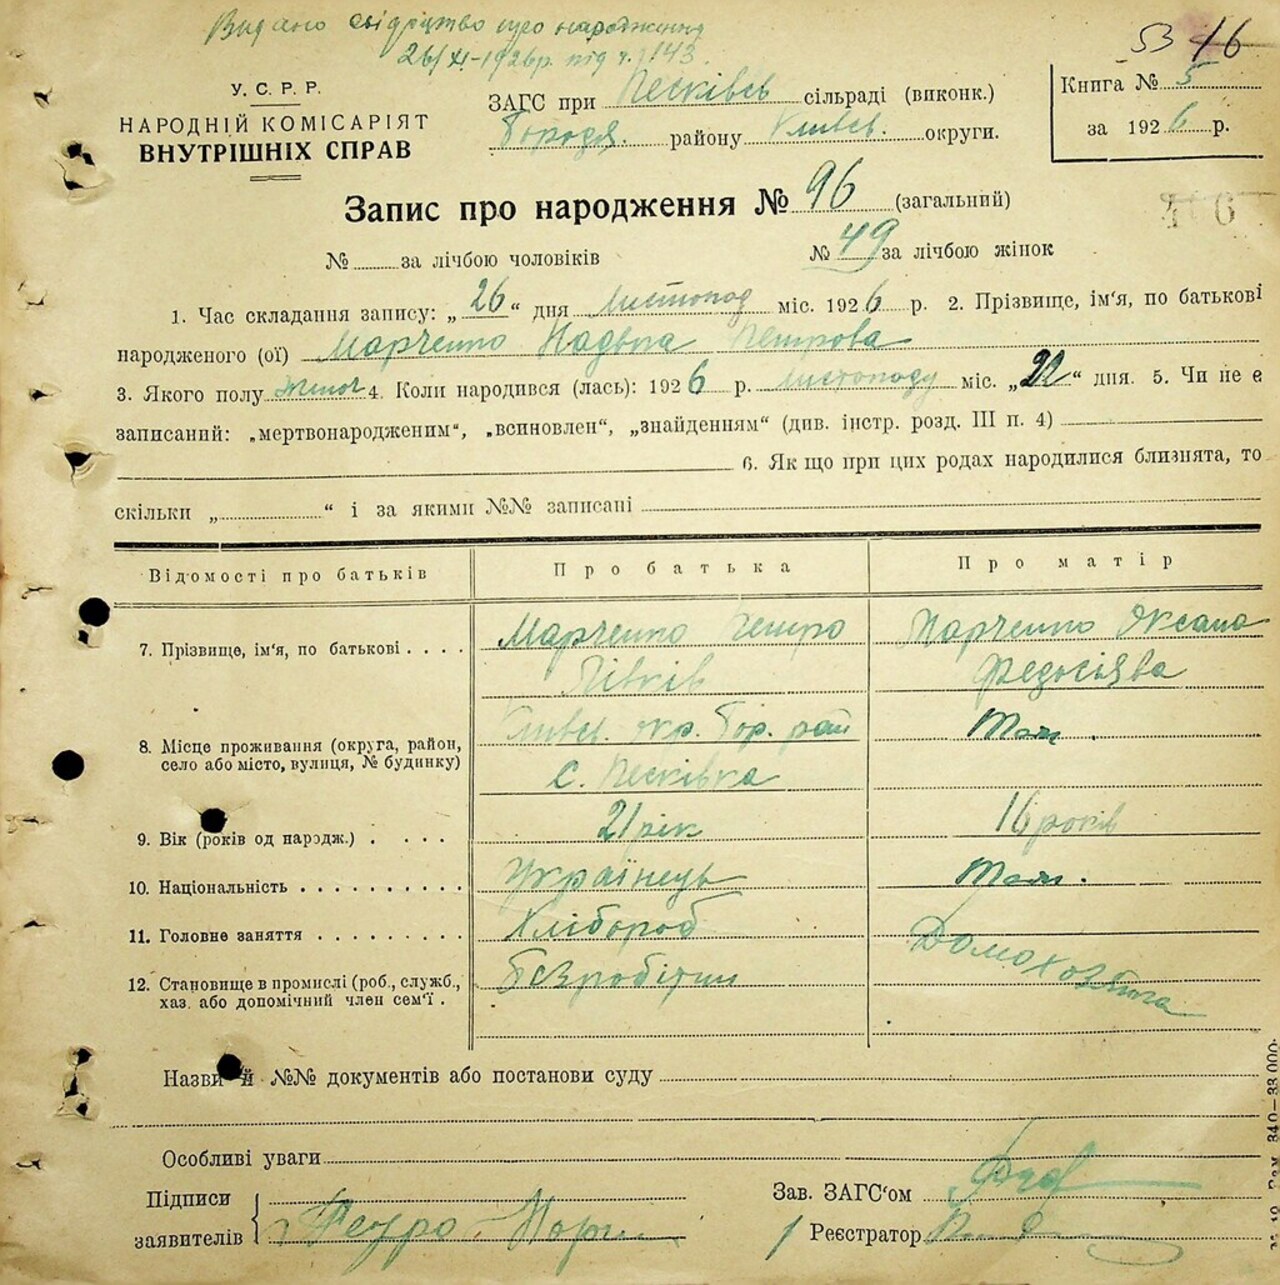 Видано свідоцтво про народження
26/XI-1926р. під ч. 143.
53 16
У. С. Р. Р.
НАРОДНІЙ КОМІСАРІЯТ
ВНУТРІШНІХ СПРАВ
ЗАГС при Песківсь сільраді (виконк.)
Бородя. району Київсь. округи.
Книга № 5
за 1926 р.
Запис про народження № 96 (загальний)
6
№ за лічбою чоловіків № 49 за лічбою жінок
1. Час складання запису: „26“ дня Листопад міс. 1926 р. 2. Прізвище, ім‘я, по батькові
народженого (ої) Марченко Надька Петрова
3. Якого полу жіноч 4. Коли народився (лась): 1926 р. листопаду міс. „22“ дня. 5. Чи не є
записаний: „мертвонародженим“, „всиновлен“, „знайденням“ (див. інстр. розд. III п. 4)
6. Як що при цих родах народилися близнята, то
скільки „ “ і за якими №№ записані
Відомості про батьків Про батька Про матір
7. Прізвище, ім‘я, по батькові . . . . Марченко Петро Марченко Оксана
Федосієва
8. Місце проживання (округа, район, село або місто, вулиця, № будинку) Київсь. окр. Бор. рай Тож.
с. Песківка
9. Вік (років од народж.) . . . . 21 рік 16 років
10. Національність . . . . . . . . . . Українець Тож.
11. Головне заняття . . . . . . . . . Хлібороб Домохозяйка
12. Становище в промислі (роб., служб., хаз. або допомічний член сем‘ї . Безробітни
Назви й №№ документів або постанови суду
Особливі уваги
Підписи
заявителів Петро Мар
Зав. ЗАГС‘ом
Реєстратор